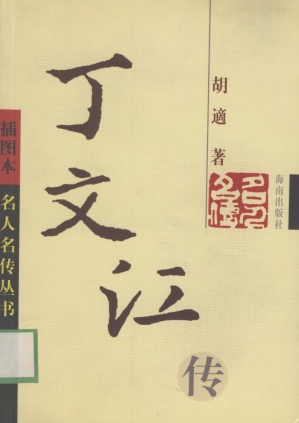 丁文江
传
胡適著
名人名传
海南出版社
插图本
名人名传丛书